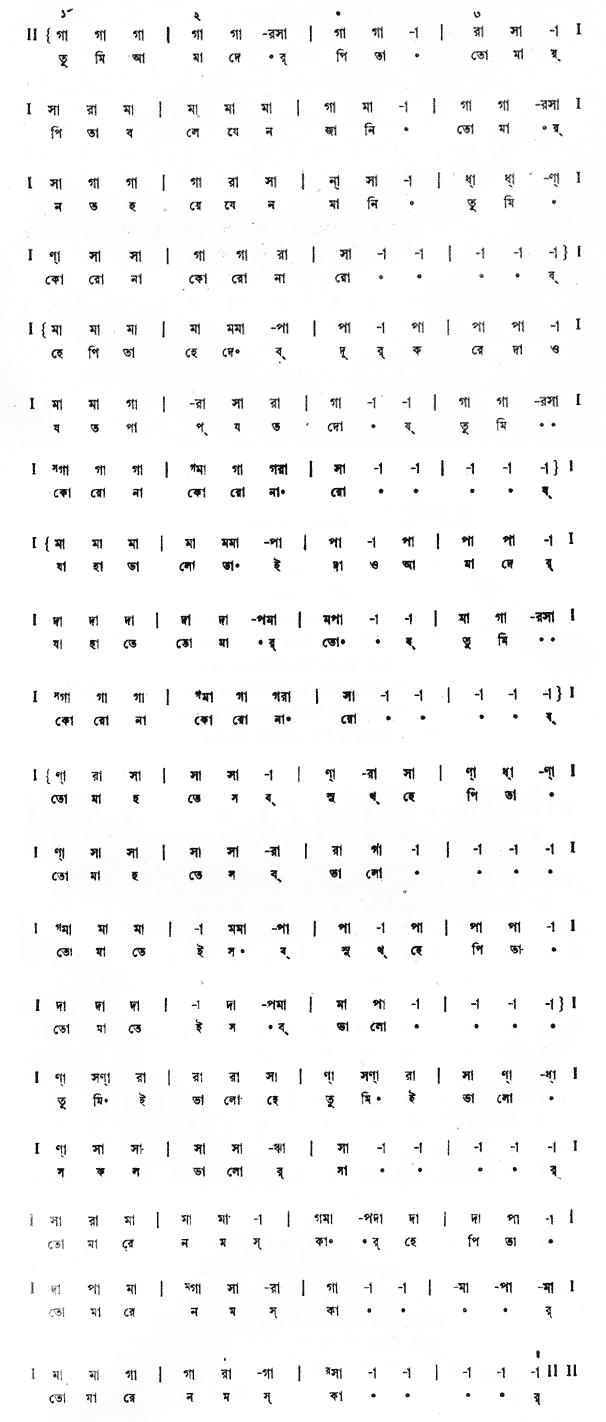 ১´ ২ ॰ ৩
II { গা গা গা | গা গা -রসা | গা গা -1 | রা সা -1 I
তু মি আ মা দে ॰ র্ পি তা ॰ তো মা র্
I সা রা মা | মা মা মা | গা মা -1 | গা গা -রসা I
পি তা ব লে যে ন জা নি ॰ তো মা ॰র্
I সা গা গা | গা রা সা | ন্ সা -1 | ধ্া ধ্া -ণ্া I
ন ত হ য়ে যে ন মা নি ॰ তু মি ॰
I ণ্া সা সা | গা গা রা | সা -1 -1 | -1 -1 -1 } I
কো রো না কো রো না রো ॰ ॰ ॰ ॰ ষ্
I { মা মা মা | মা মমা -পা | পা -1 পা | পা পা -1 I
হে পি তা হে দে॰ ব্ দূ র্ ক রে দা ও
I মা মা গা | -রা সা রা | গা -1 -1 | গা গা -রসা I
য ত পা প্ য ত দো ॰ ষ্ তু মি ॰॰
I ᵐগা গা গা | ᵍমা গা গরা | সা -1 -1 | -1 -1 -1 } I
কো রো না কো রো না॰ রো ॰ ॰ ॰ ॰ ষ্
I { মা মা মা | মা মমা -পা | পা -1 পা | পা পা -1 I
যা হা ভা লো তা॰ ই দা ও আ মা দে র্
I দা দা দা | দা দা -পমা | মপা -1 -1 | মা গা -রসা I
যা হা তে তো মা ॰র্ তো॰ ॰ ষ্ তু মি ॰॰
I ᵐগা গা গা | ᵍমা গা গরা | সা -1 -1 | -1 -1 -1 } I
কো রো না কো রো না॰ রো ॰ ॰ ॰ ॰ ষ্
I { ণ্া রা সা | সা সা -1 | ণ্া -রা সা | ণ্া ধ্া -ণ্া I
তো মা হ তে স ব্ সু খ্ হে পি তা ॰
I ণ্া সা সা | সা সা -রা | রা গা -1 | -1 -1 -1 I
তো মা হ তে স ব্ ভা লো ॰ ॰ ॰ ॰
I ᵍমা মা মা | -1 মমা -পা | পা -1 পা | পা পা -1 I
তো মা তে ই স॰ ব্ সু খ্ হে পি তা ॰
I দা দা দা | -1 দা -পমা | মা পা -1 | -1 -1 -1 } I
তো মা তে ই স ॰ব্ ভা লো ॰ ॰ ॰ ॰
I ণ্া সণ্া রা | রা রা সা | ণ্া সণ্া রা | সা ণ্া -ধ্া I
তু মি॰ ই ভা লো হে তু মি॰ ই ভা লো ॰
I ণ্া সা সা | সা সা -ঋা | সা -1 -1 | -1 -1 -1 I
স ক ল ভা লো র্ সা ॰ ॰ ॰ ॰ র্
I সা রা মা | মা মা -1 | গমা -পদা দা | দা পা -1 I
তো মা রে ন ম স্ কা॰ ॰র্ হে পি তা ॰
I দা পা মা | ᵐগা সা -রা | গা -1 -1 | -মা -পা -মা I
তো মা রে ন ম স্ কা ॰ ॰ ॰ ॰ র্
I মা মা গা | গা রা -গা | ʳসা -1 -1 | -1 -1 -1 II II
তো মা রে ন ম স্ কা ॰ ॰ ॰ ॰ র্